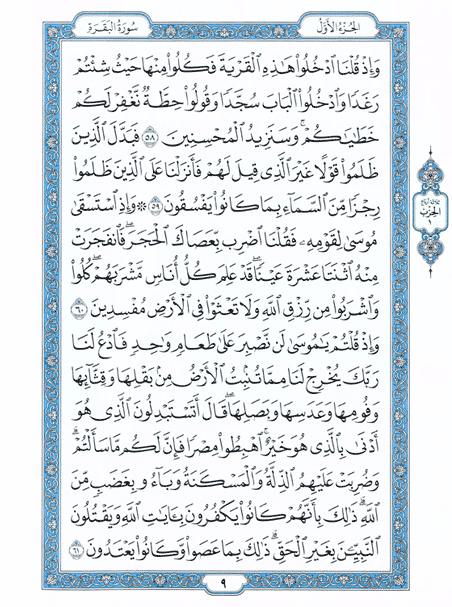 الجزء الأول
سورة البقرة
وَإِذْ قُلْنَا ٱدْخُلُوا۟ هَٰذِهِ ٱلْقَرْيَةَ فَكُلُوا۟ مِنْهَا حَيْثُ شِئْتُمْ
رَغَدًا وَٱدْخُلُوا۟ ٱلْبَابَ سُجَّدًا وَقُولُوا۟ حِطَّةٌ نَّغْفِرْ لَكُمْ
خَطَٰيَٰكُمْ ۚ وَسَنَزِيدُ ٱلْمُحْسِنِينَ ٥٨ فَبَدَّلَ ٱلَّذِينَ
ظَلَمُوا۟ قَوْلًا غَيْرَ ٱلَّذِى قِيلَ لَهُمْ فَأَنزَلْنَا عَلَى ٱلَّذِينَ ظَلَمُوا۟
رِجْزًا مِّنَ ٱلسَّمَآءِ بِمَا كَانُوا۟ يَفْسُقُونَ ٥٩ ۞ وَإِذِ ٱسْتَسْقَىٰ
مُوسَىٰ لِقَوْمِهِۦ فَقُلْنَا ٱضْرِب بِّعَصَاكَ ٱلْحَجَرَ ۖ فَٱنفَجَرَتْ
مِنْهُ ٱثْنَتَا عَشْرَةَ عَيْنًا ۖ قَدْ عَلِمَ كُلُّ أُنَاسٍ مَّشْرَبَهُمْ ۖ كُلُوا۟
وَٱشْرَبُوا۟ مِن رِّزْقِ ٱللَّهِ وَلَا تَعْثَوْا۟ فِى ٱلْأَرْضِ مُفْسِدِينَ ٦٠
وَإِذْ قُلْتُمْ يَٰمُوسَىٰ لَن نَّصْبِرَ عَلَىٰ طَعَامٍ وَٰحِدٍ فَٱدْعُ لَنَا
رَبَّكَ يُخْرِجْ لَنَا مِمَّا تُنۢبِتُ ٱلْأَرْضُ مِنۢ بَقْلِهَا وَقِثَّآئِهَا
وَفُومِهَا وَعَدَسِهَا وَبَصَلِهَا ۖ قَالَ أَتَسْتَبْدِلُونَ ٱلَّذِى هُوَ
أَدْنَىٰ بِٱلَّذِى هُوَ خَيْرٌ ۚ ٱهْبِطُوا۟ مِصْرًا فَإِنَّ لَكُم مَّا سَأَلْتُمْ ۗ
وَضُرِبَتْ عَلَيْهِمُ ٱلذِّلَّةُ وَٱلْمَسْكَنَةُ وَبَآءُو بِغَضَبٍ مِّنَ
ٱللَّهِ ۗ ذَٰلِكَ بِأَنَّهُمْ كَانُوا۟ يَكْفُرُونَ بِـَٔايَٰتِ ٱللَّهِ وَيَقْتُلُونَ
ٱلنَّبِيِّـۧنَ بِغَيْرِ ٱلْحَقِّ ۗ ذَٰلِكَ بِمَا عَصَوا۟ وَّكَانُوا۟ يَعْتَدُونَ ٦١
٩